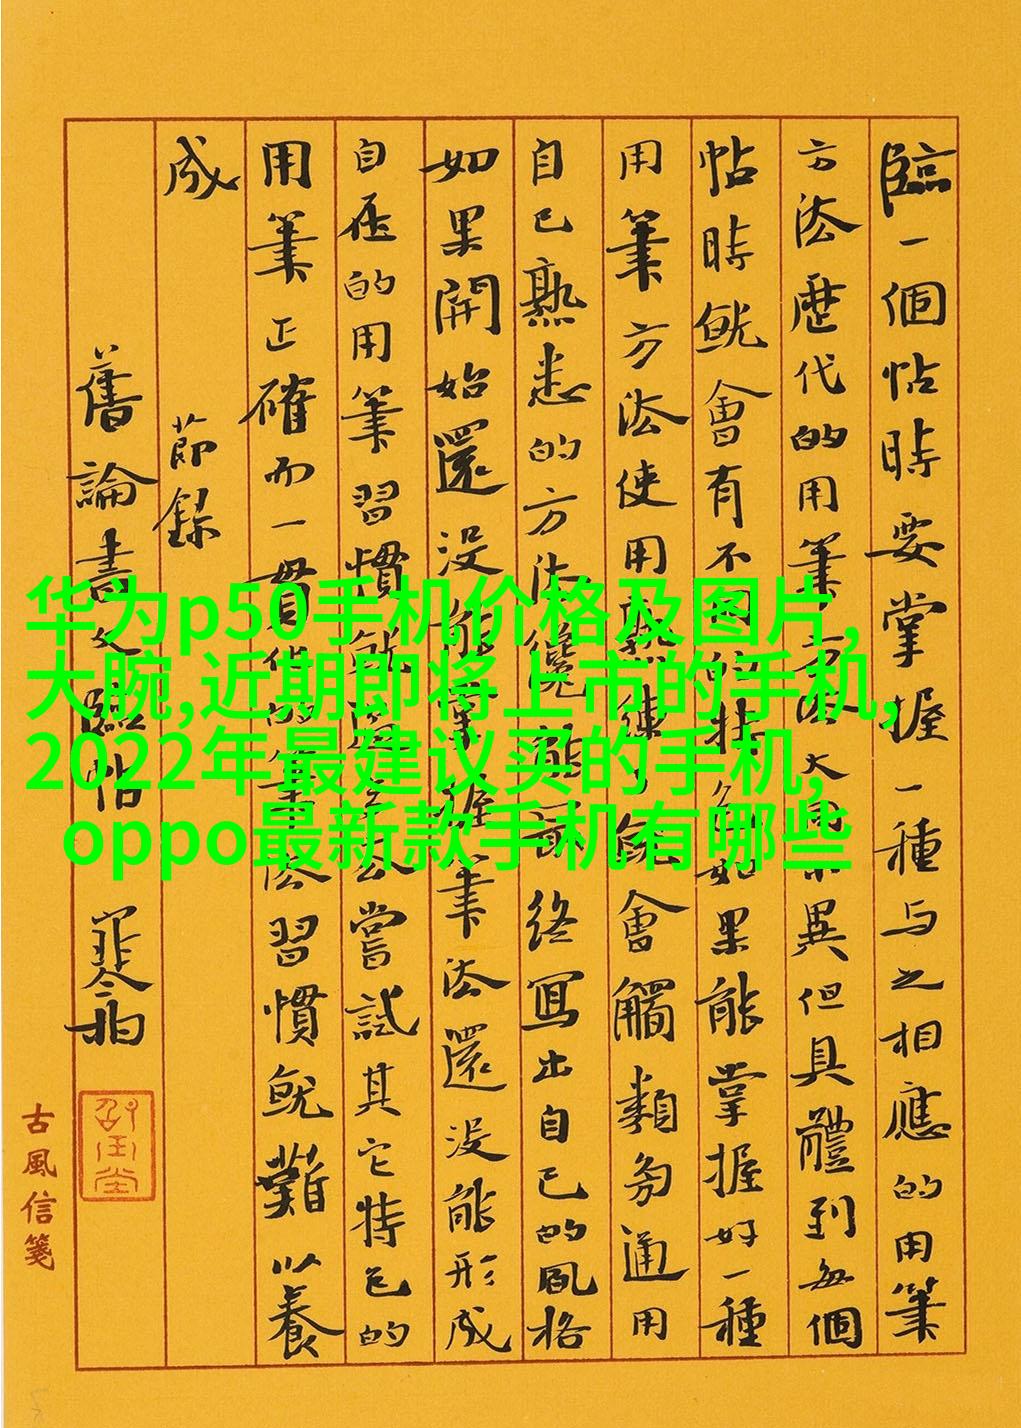 臨一個帖時要掌握一種与之相應的用筆
方法歷代的用筆方法大同小異但具體到每個
帖時就會有不同的技如果能掌握好一種
用筆方法使用熟練會觸類旁通用
自己熟悉的方法纔能最終寫出自己的風格
如果開始還沒能掌握筆法還沒能形成
自在的用筆習慣就嘗試其它特色的
用筆正確而一貫化的筆法習慣就難以養
成 節錄
舊論書文臨帖
古風信箋
华为p50手机价格及图片,
大腕,近期即将上市的手机,
2022年最建议买的手机,
oppo最新款手机有哪些